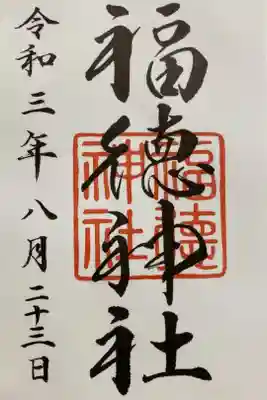 福徳神社
福德神社
令和三年八月二十三日